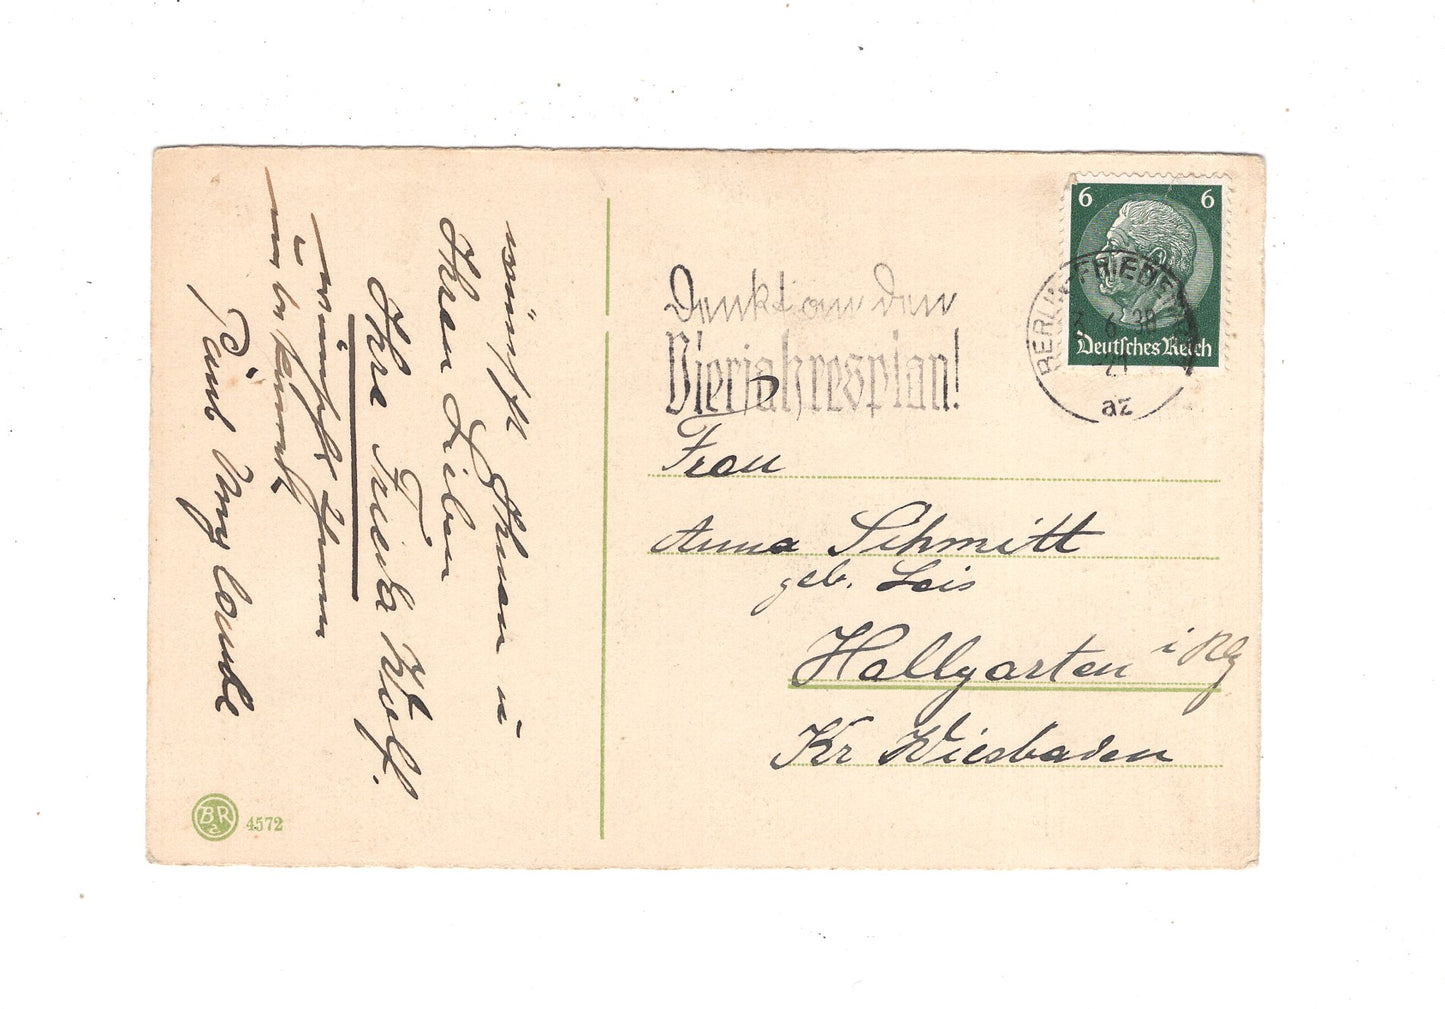 wünscht Ihnen u
Ihren Lieben
Ihre Frieda Wolf.
wünscht Ihnen
unbekannt
Denkt an den
Vierjahresplan!
6 6
Deutsches Reich
BERLIN-FRIEDENAU
6.38
az
Frau
Anna Schmitt
geb. Leis
Hallgarten i Rhg
Kr Wiesbaden
BR
4572